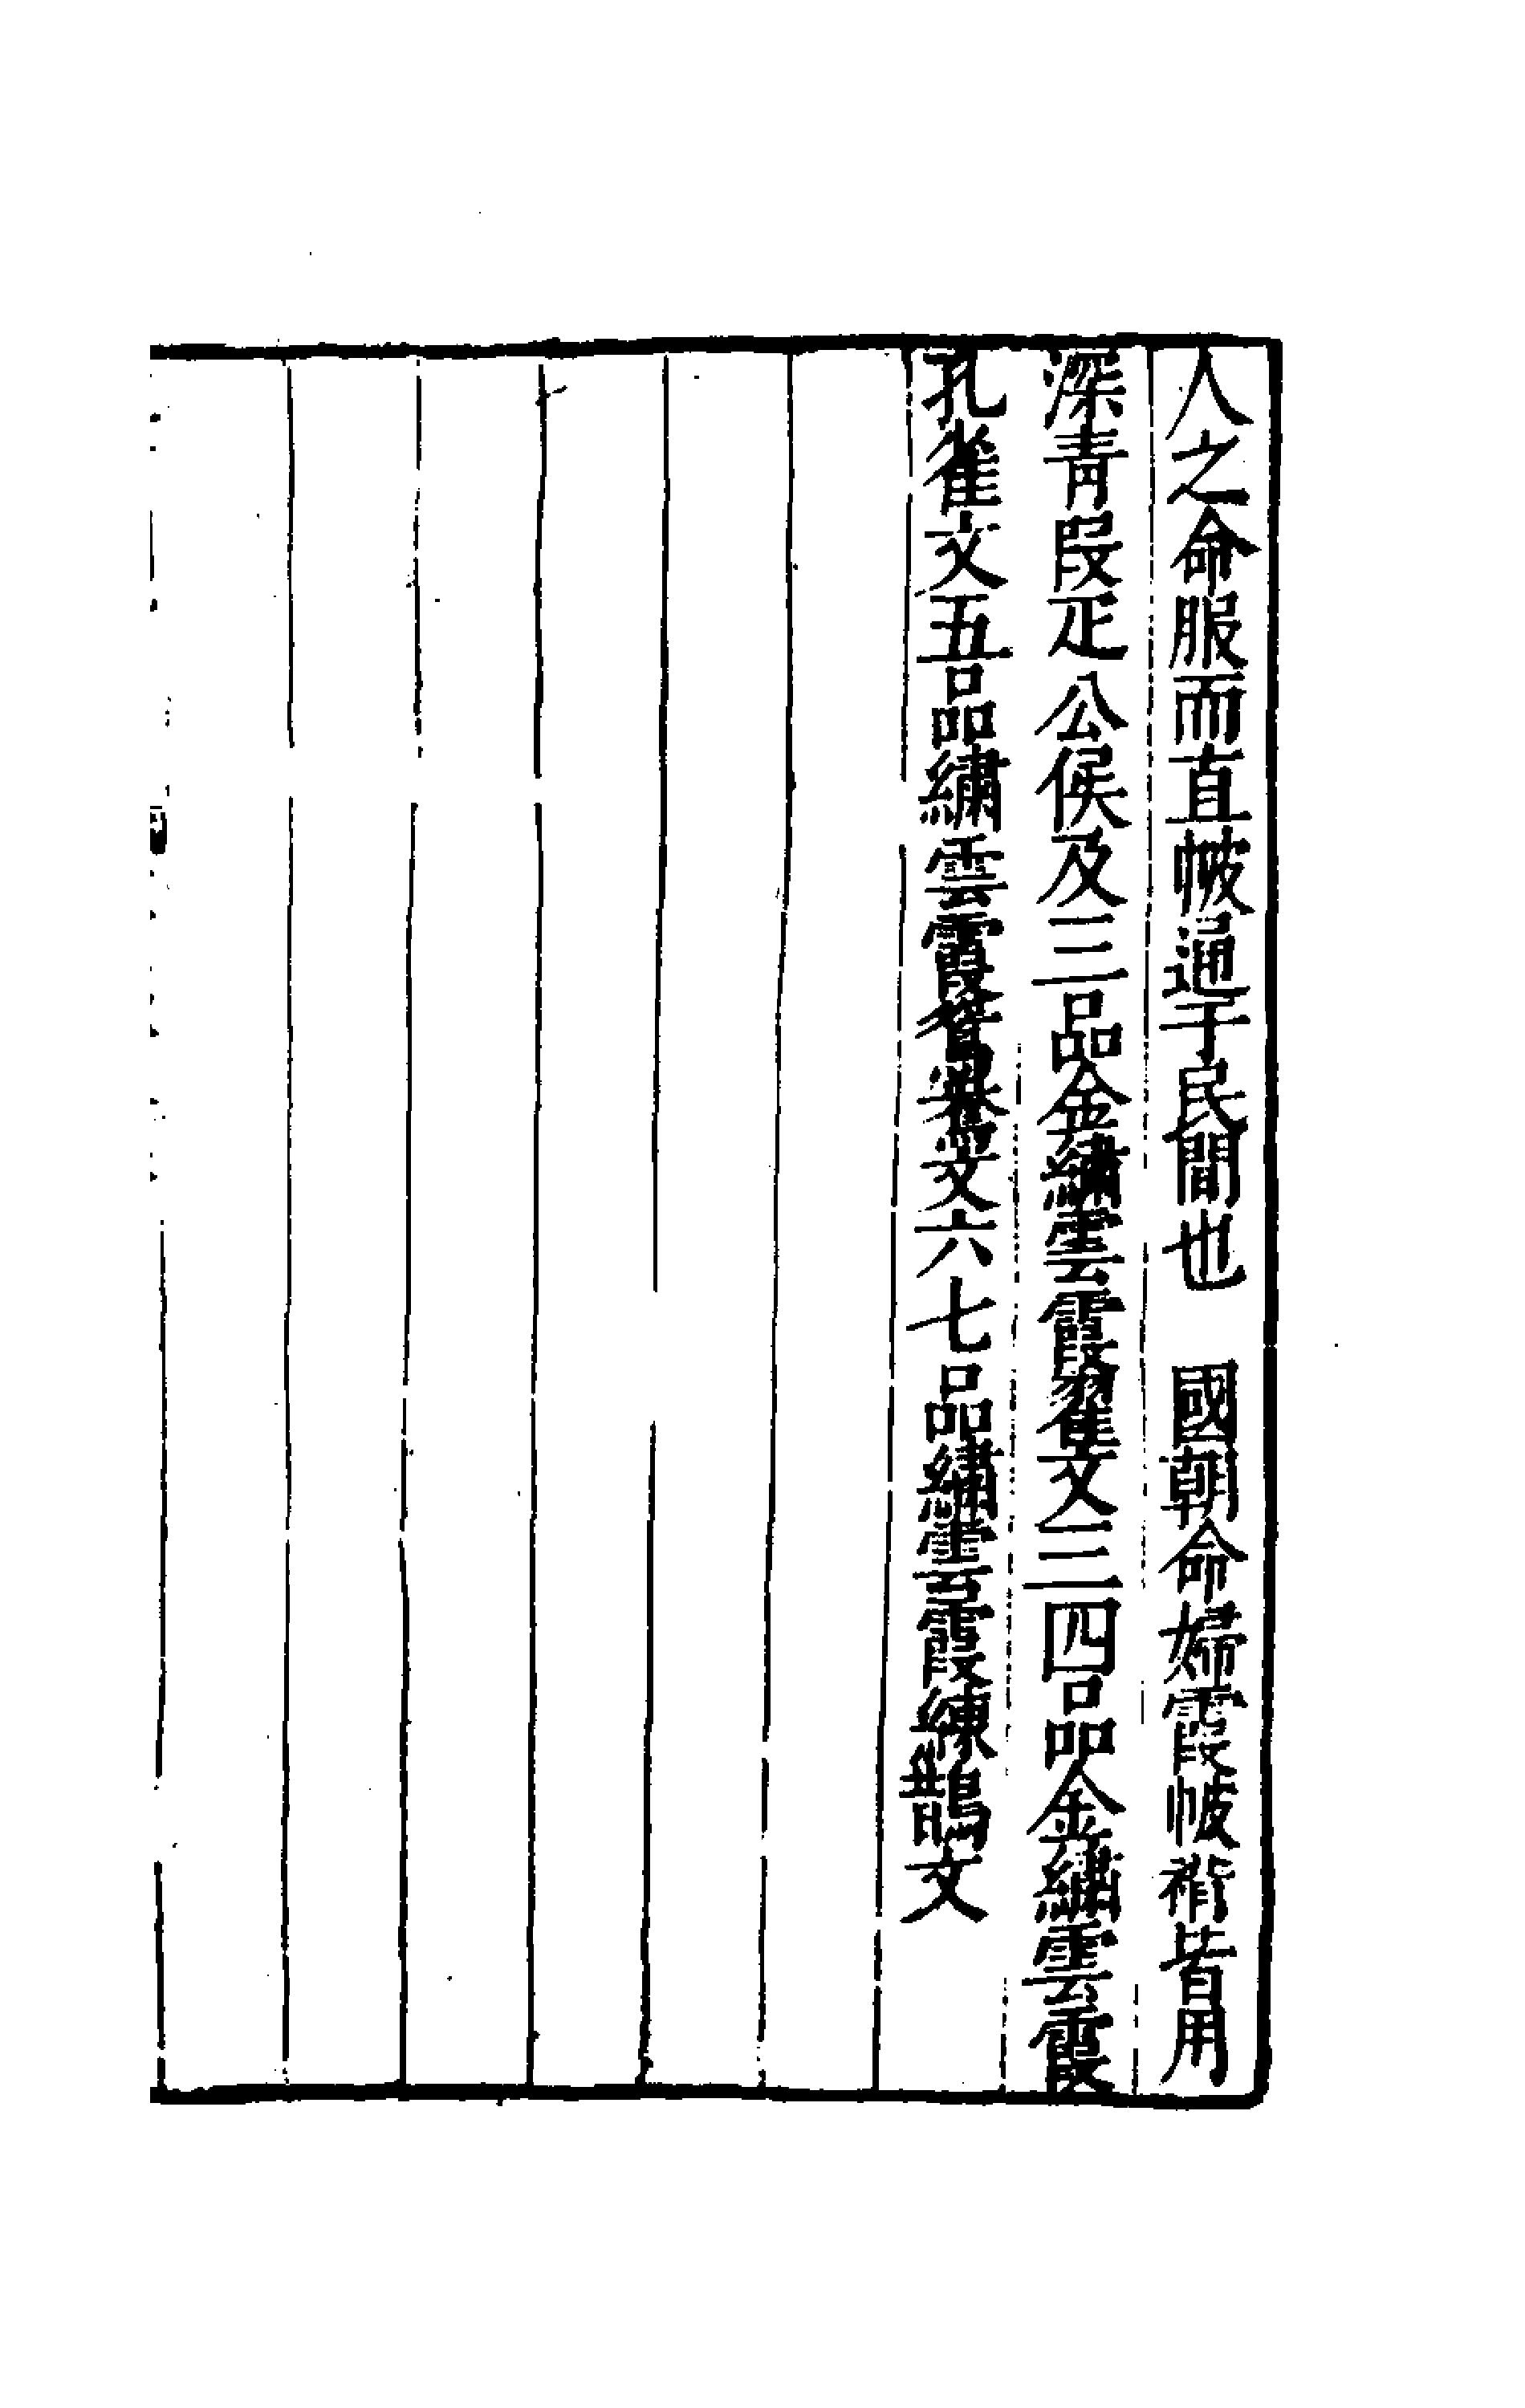 人之命服而直帔通于民間也　國朝命婦霞帔褙皆用
深青段疋公侯及三品金繡雲霞翟文三四品金繡雲霞
孔雀文五品繡雲霞鴛鴦文六七品繡雲霞練鵲文